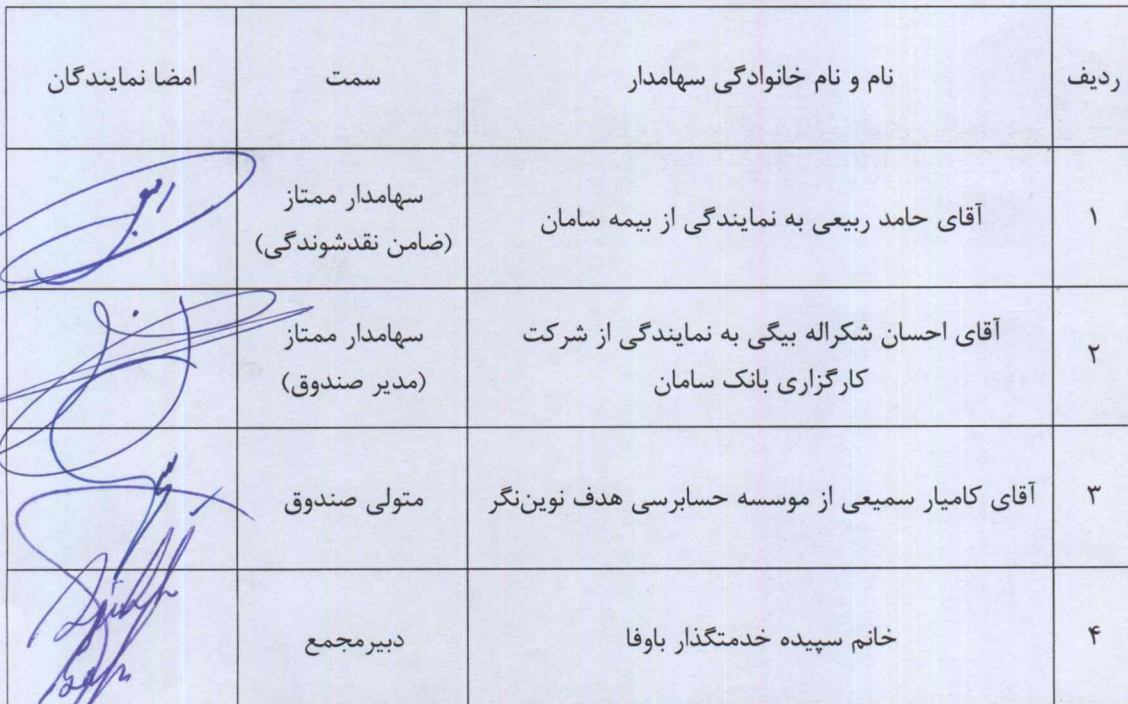 ردیف نام و نام خانوادگی سهامدار سمت امضا نمایندگان
۱ آقای حامد ربیعی به نمایندگی از بیمه سامان سهامدار ممتاز
(ضامن نقدشوندگی)
۲ آقای احسان شکراله بیگی به نمایندگی از شرکت سهامدار ممتاز
کارگزاری بانک سامان (مدیر صندوق)
۳ آقای کامیار سمیعی از موسسه حسابرسی هدف نوین‌نگر متولی صندوق
۴ خانم سپیده خدمتگذار باوفا دبیرمجمع